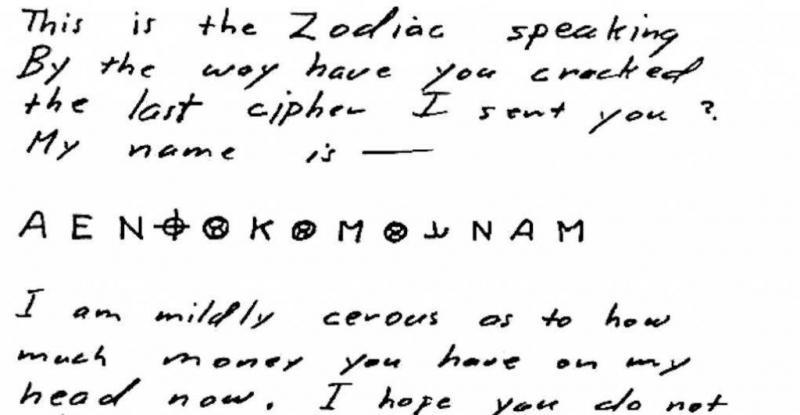 This is the Zodiac speaking
By the way have you cracked
the last cipher I sent you?
My name is —
A E N ⌖ ⊗ K ⊗ M ⊗ N A M
I am mildly cerous as to how
much money you have on my
head now. I hope you do not